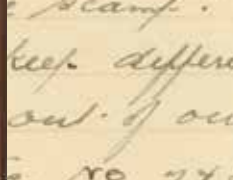 e stamp.
keep differe
out of ou